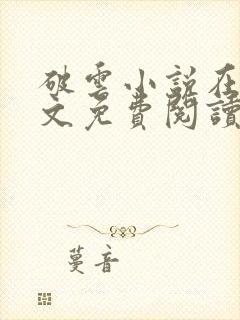 破雲小說在
文免費閱讀
蔓音